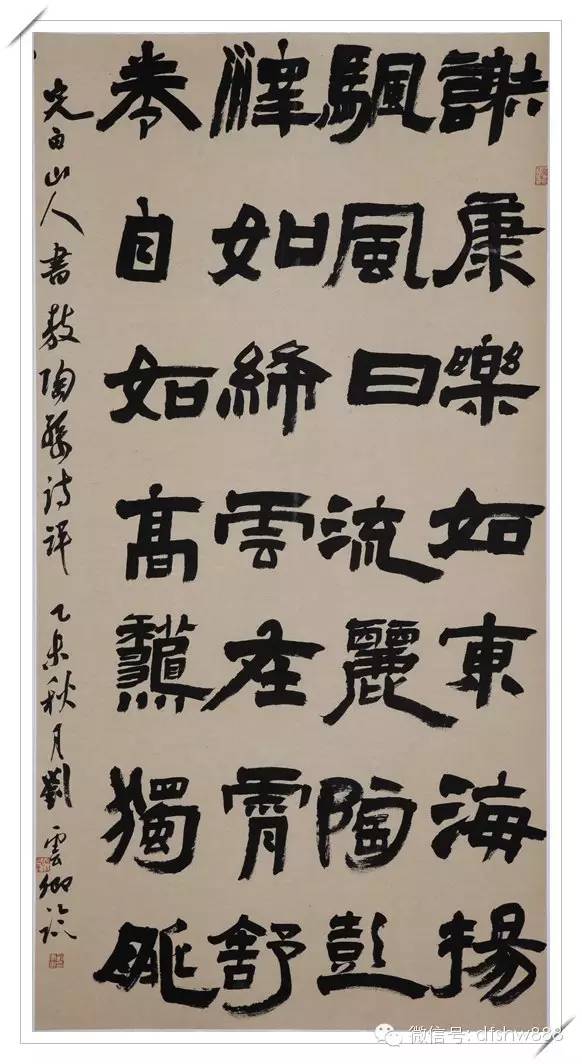 謝康樂如東海揚
颿風日流麗陶彭
澤如絳雲在霄舒
卷自如高龝獨眺
完白山人書敖陶孫詩評 乙未秋月劉雲卿臨
微信号: dfshw888